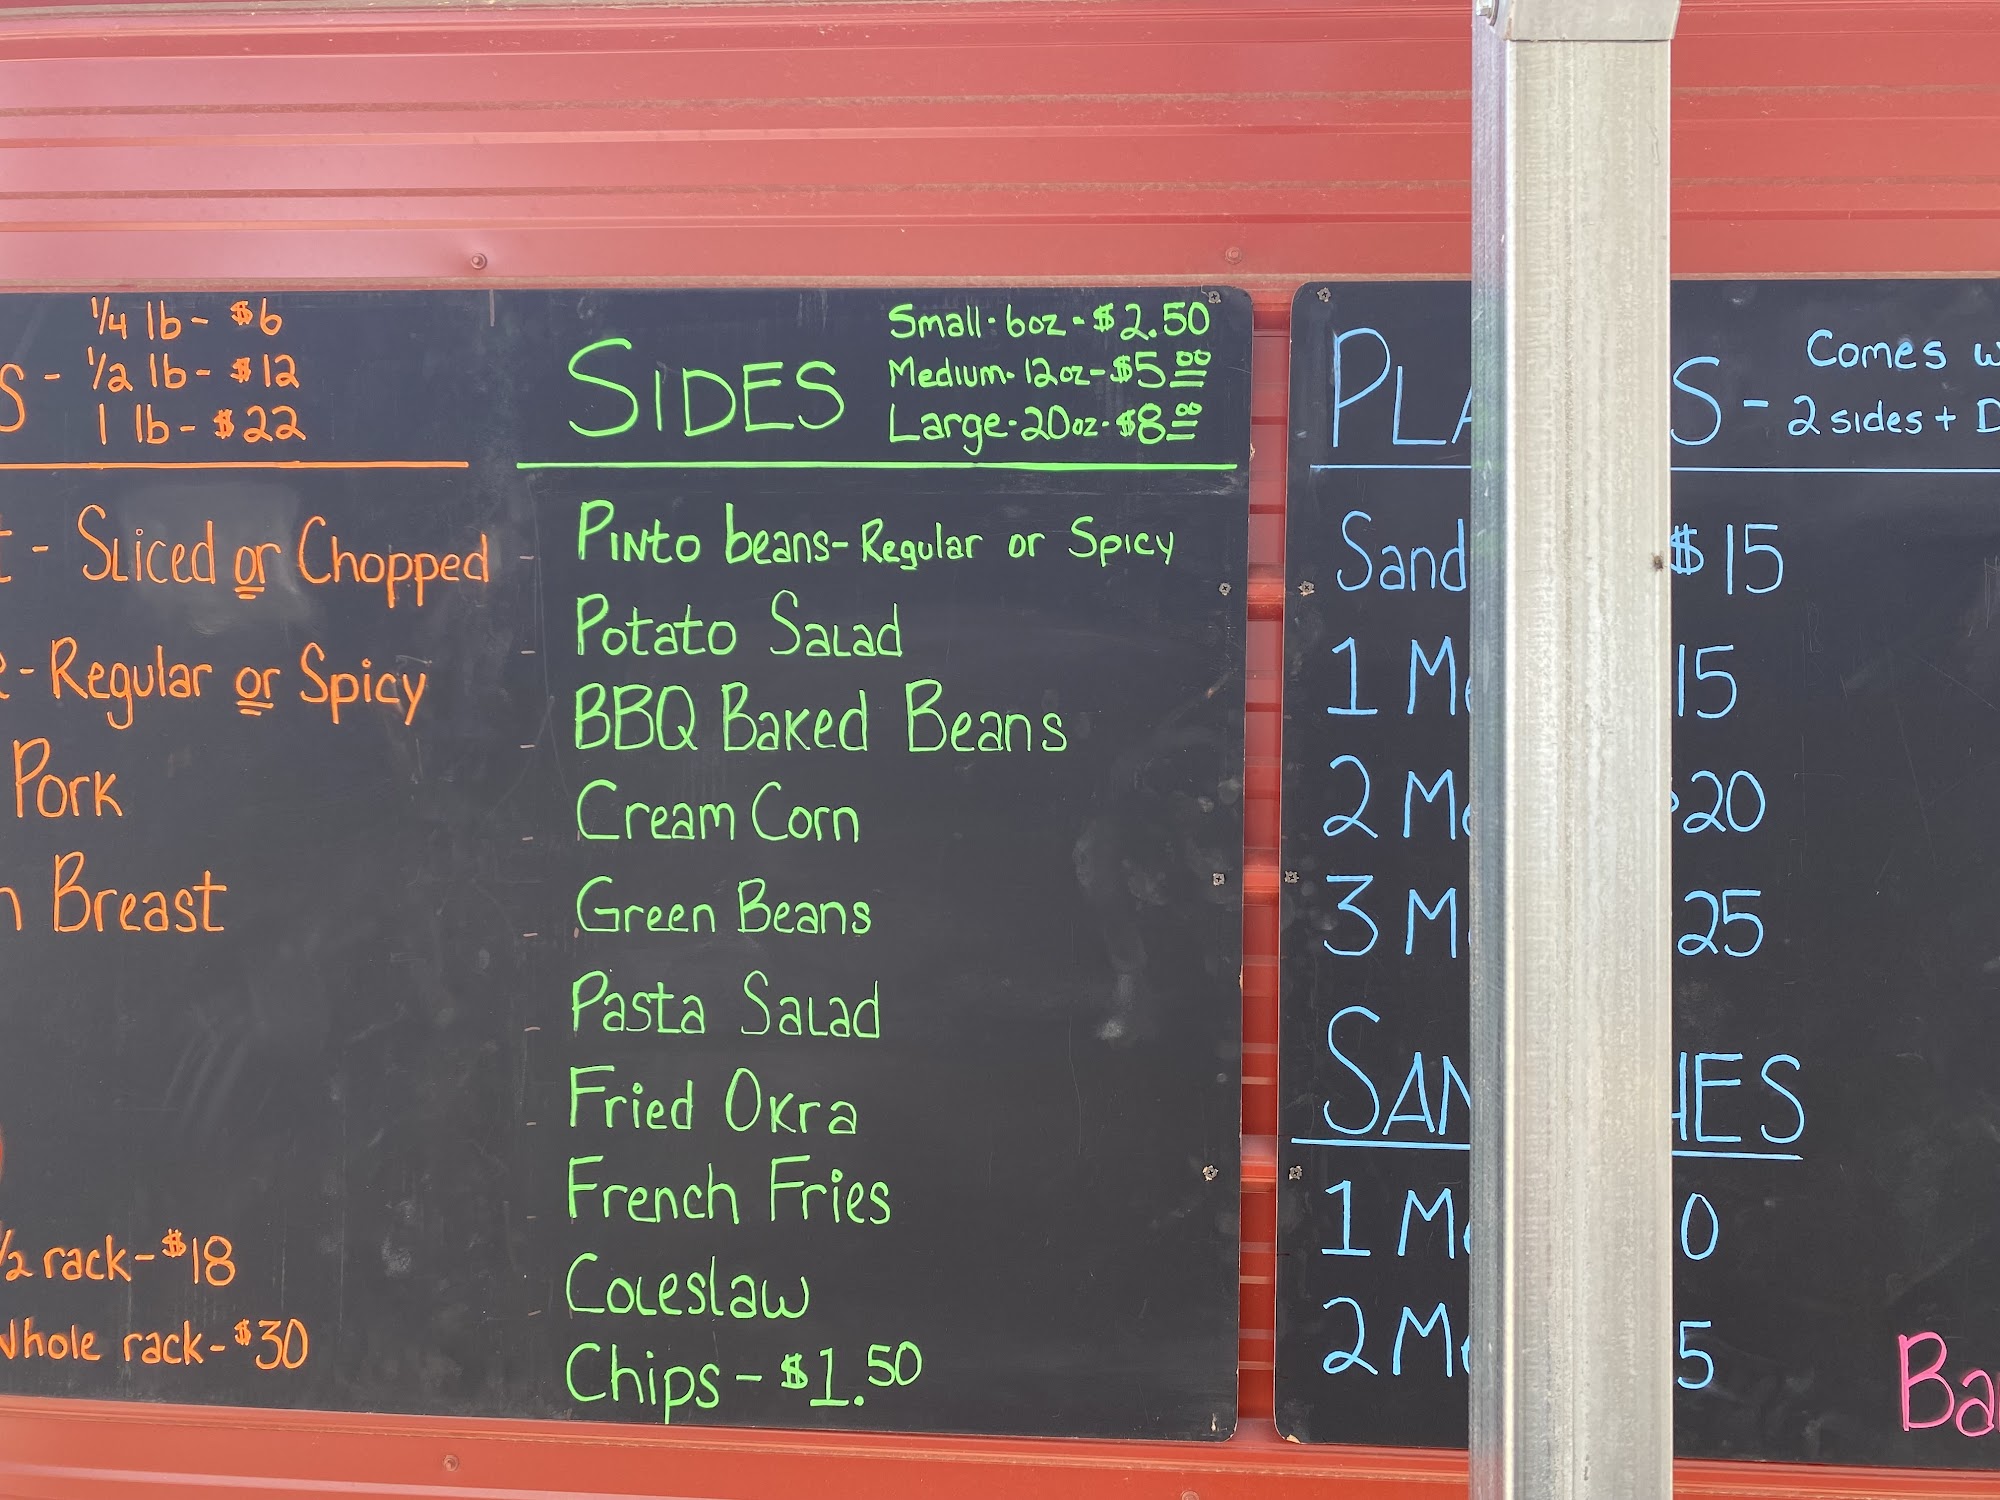 1/4 lb - $6
S - 1/2 lb - $12
1 lb - $22
- Sliced or Chopped
- Regular or Spicy
Pork
Breast
1/2 rack - $18
Whole rack - $30
SIDES
Small - 6oz - $2.50
Medium - 12oz - $5.00
Large - 20oz - $8.00
Pinto beans - Regular or Spicy
Potato Salad
BBQ Baked Beans
Cream Corn
Green Beans
Pasta Salad
Fried Okra
French Fries
Coleslaw
Chips - $1.50
PLA S -
Comes w
2 sides + D
Sand $15
1 Me 15
2 Me $20
3 M 25
SAN HES
1 Me 0
2 Me 5
Ba